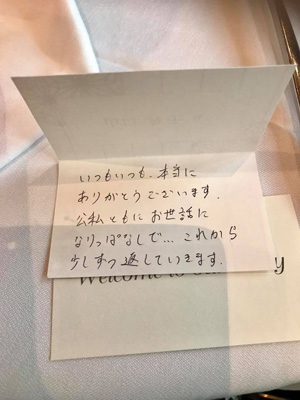 いつもいつも、本当に
ありがとうございます.
公私ともに お世話に
なりっぱなしで... これから
少しずつ返していきます.
Welcome to